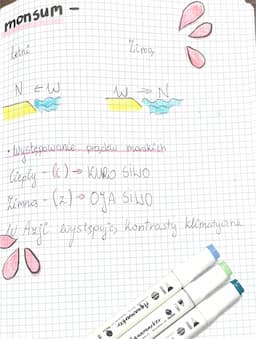 monsum -
letni Zimą
N ← W W → N
• Występowanie prądów morskich
Ciepły - (c) → KURO SIWO
Zimna - (z) → OJA SIWO
W Azji występują kontrasty klimatyczne